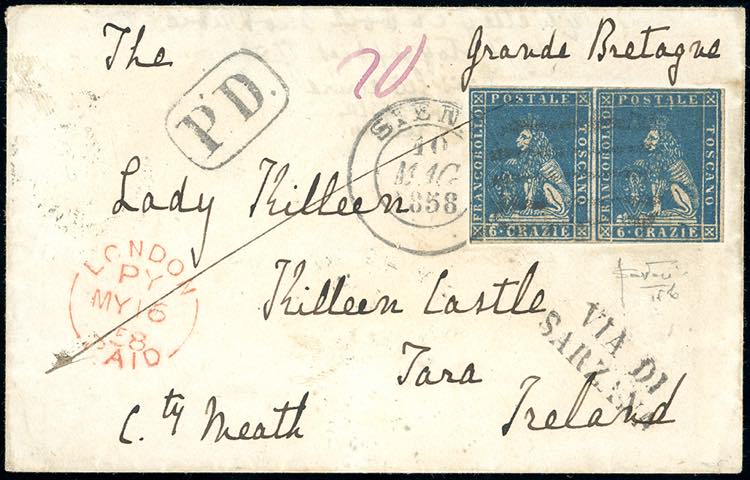 The
Grande Bretagne
P.D.
70
SIEN
10
MAG
1858
FRANCOBOLLO POSTALE TOSCANO
6·CRAZIE
FRANCOBOLLO POSTALE TOSCANO
6·CRAZIE
Lady Killeen
LONDON
PY
MY 16
58
PAID
Killeen Castle
VIA DI
SARZANA
Tara
Cty Meath
Ireland